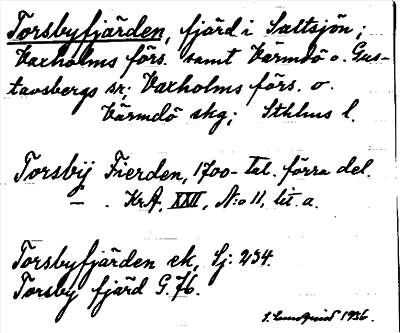 Torsbyfjärden, fjärd i Saltsjön;
Vaxholms förs. samt Värmdö o. Gus-
tavsbergs sn: Vaxholms förs. o.
Värmdö skg; Sthlms l.
Torsbÿ Fierden, 1700-tal. förra del.
— . Kr.A. XXII, N:o 11, lit. a.
Torsbyfjärden ek. Sj: 234.
Torsby fjärd G. 76.
S. Lundqvist 1936.